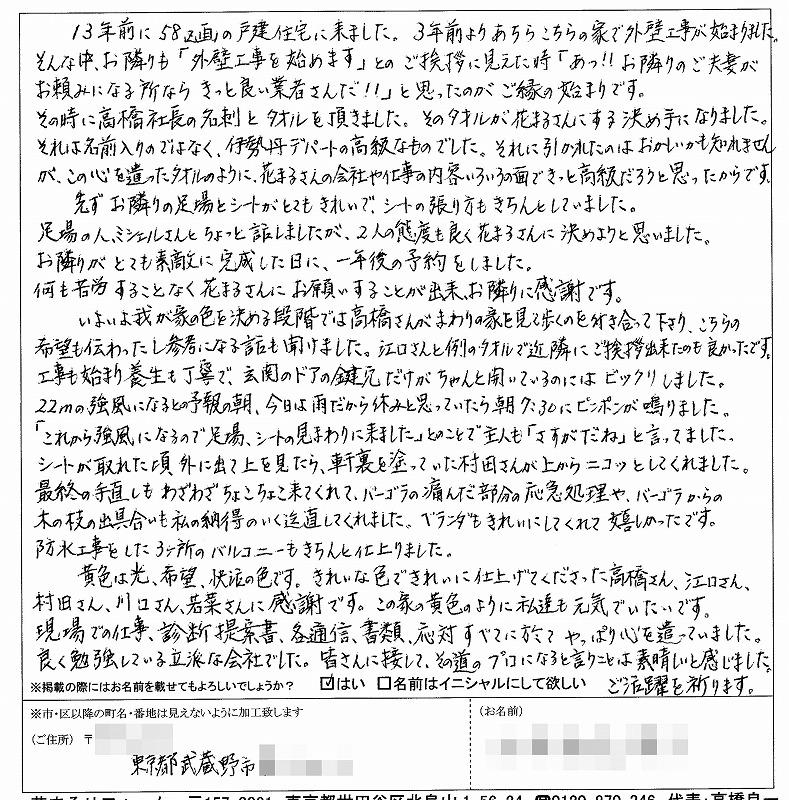 13年前に58区画の戸建住宅に来ました。3年前よりあちらこちらの家で外壁工事が始まりました。
そんな中、お隣りも「外壁工事を始めます」とのご挨拶に見えた時「あっ!!お隣りのご夫妻が
お頼みになる所ならきっと良い業者さんだ!!」と思ったのがご縁の始まりです。
その時に高橋社長の名刺とタオルを頂きました。そのタオルが花まるさんにする決め手になりました。
それは名前入りのではなく、伊勢丹デパートの高級なものでした。それに引かれたのはおかしいかも知れません
が、この心を遣ったタオルのように、花まるさんの会社や仕事の内容いろいろの面できっと高級だろうと思ったからです。
先ずお隣りの足場とシートがとてもきれいで、シートの張り方もきちんとしていました。
足場の人、ミシェルさんとちょっと話しましたが、2人の態度も良く花まるさんに決めようと思いました。
お隣りがとても素敵に完成した日に、一年後の予約をしました。
何も苦労することなく花まるさんにお願いすることが出来、お隣りに感謝です。
いよいよ我が家の色を決める段階では高橋さんがまわりの家を見て歩くのを付き合って下さり、こちらの
希望も伝わったし参考になる話も聞けました。江口さんと例のタオルで近隣にご挨拶出来たのも良かったです。
工事も始まり養生も丁寧で、玄関のドアの鍵元だけがちゃんと開いているのにはビックリしました。
22mの強風になるとの予報の朝、今日は雨だから休みと思っていたら朝7:30にピンポンが鳴りました。
「これから強風になるので足場、シートの見まわりに来ました」とのことで主人も「さすがだね」と言ってました。
シートが取れた頃外に出て上を見たら、軒裏を塗っていた村田さんが上からニコッとしてくれました。
最終の手直しもわざわざちょこちょこ来てくれて、パーゴラの痛んだ部分の応急処理や、パーゴラからの
木の枝の出具合いも私の納得のいく迄直してくれました。ベランダもきれいにしてくれて嬉しかったです。
防水工事をした3ヶ所のバルコニーもきちんと仕上りました。
黄色は光、希望、快活の色です。きれいな色できれいに仕上げてくださった高橋さん、江口さん、
村田さん、川口さん、若菜さんに感謝です。この家の黄色のように私達も元気でいたいです。
現場での仕事、診断提案書、各通信、書類、応対すべてに於てやっぱり心を遣っていました。
良く勉強している立派な会社でした。皆さんに接して、その道のプロになると言うことは素晴しいと感じました。
※掲載の際にはお名前を載せてもよろしいでしょうか? ☑はい □名前はイニシャルにして欲しい ご活躍を祈ります。
※市・区以降の町名・番地は見えないように加工致します
(お名前)
(ご住所) 〒
東京都武蔵野市